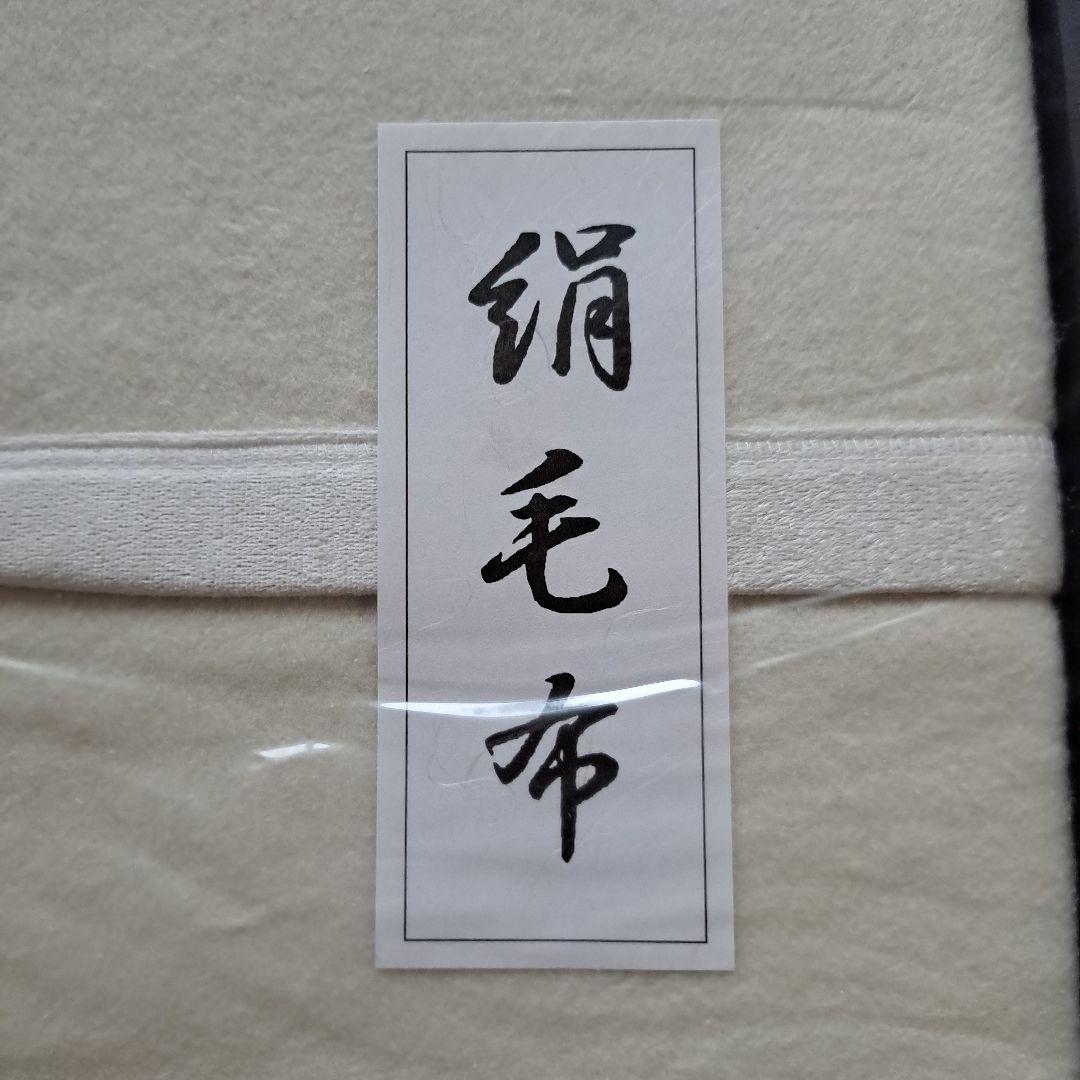 絹毛布